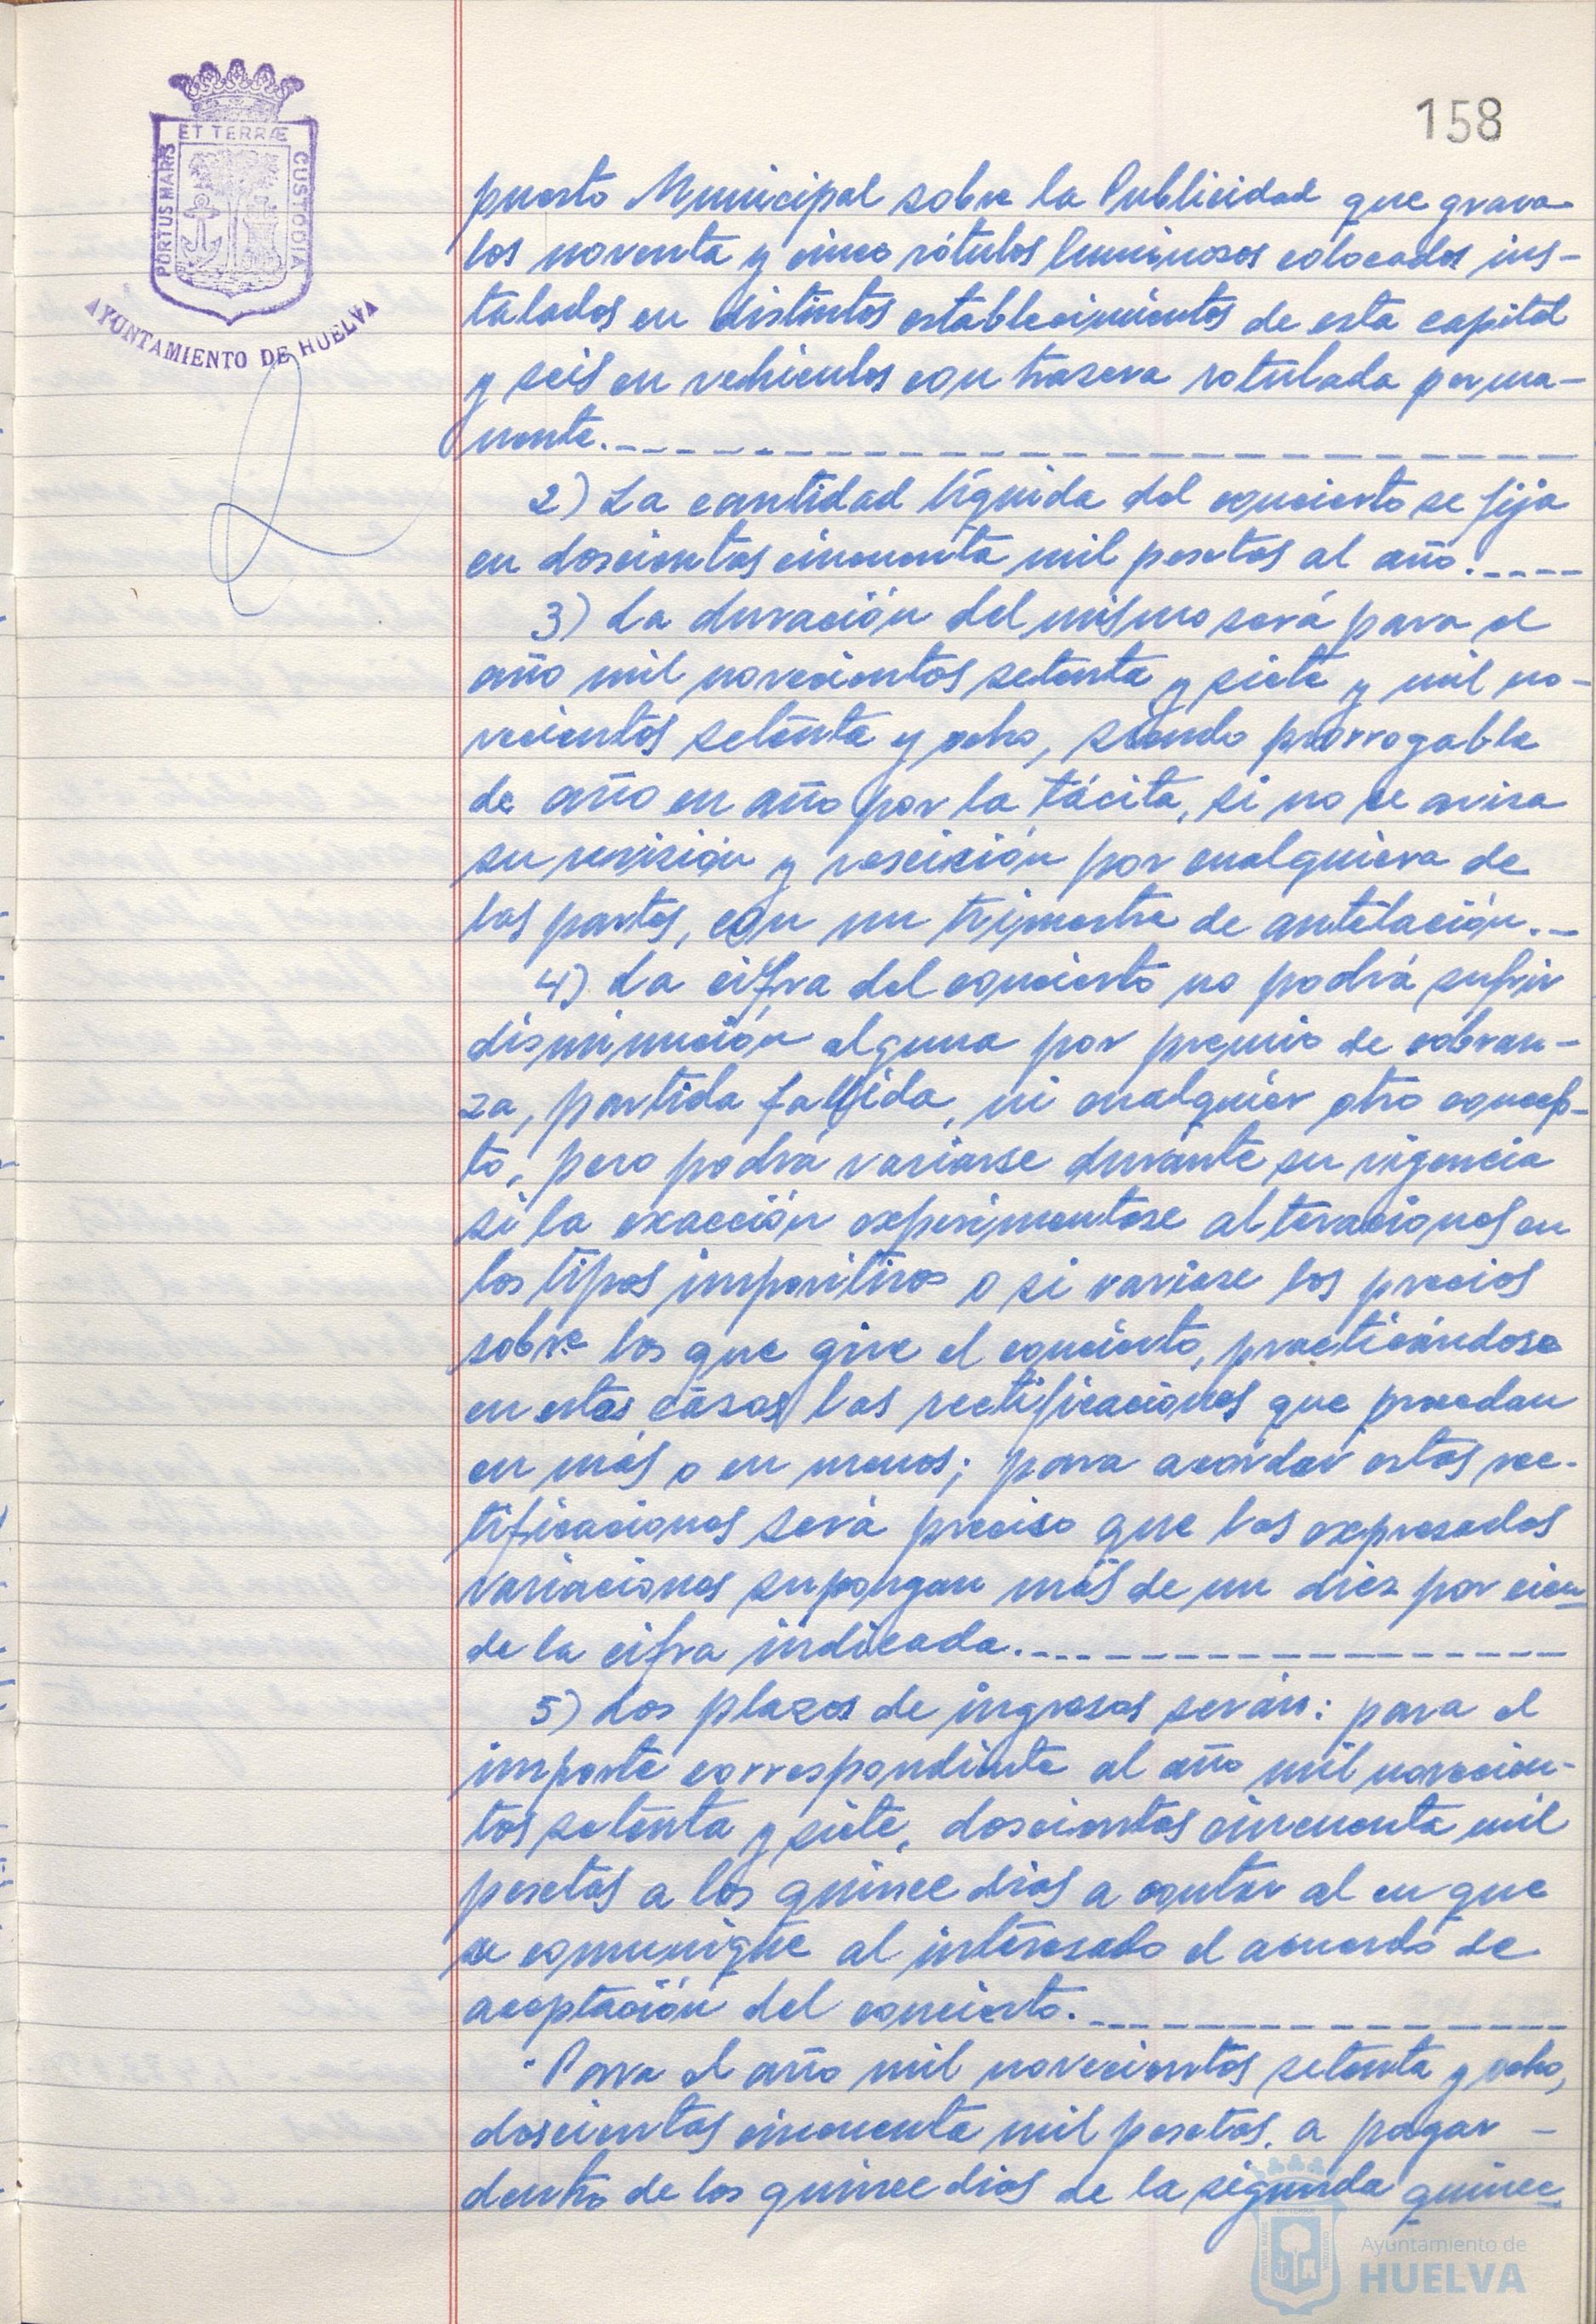 158
ET TERRÆ
PORTUS MARIS
CUSTODIA
AYUNTAMIENTO DE HUELVA
puesto Municipal sobre la Publicidad que grava
los noventa y cinco rótulos luminosos colocados ins-
talados en distintos establecimientos de esta capital
y seis en vehiculos con trasera rotulada perma-
nente.
2) La cantidad líquida del concierto se fija
en doscientas cincuenta mil pesetas al año.
3) La duración del mismo será para el
año mil novecientos setenta y siete y mil no-
vecientos setenta y ocho, siendo prorrogable
de año en año por la tácita, si no se avisa
su revisión y rescisión por cualquiera de
las partes, con un trimestre de antelación.
4) La cifra del concierto no podrá sufrir
disminución alguna por premio de cobran-
za, partida fallida, ni cualquier otro concep-
to, pero podrá variarse durante su vigencia
si la exacción experimentase alteraciones en
los tipos impositivos o si variase los precios
sobre los que gire el concierto, practicándose
en estos casos las rectificaciones que procedan
en más o en menos; para acordar estas rec-
tificaciones será preciso que las expresadas
variaciones supongan más de un diez por cien
de la cifra indicada.
5) Los plazos de ingresos serán: para el
importe correspondiente al año mil novecien-
tos setenta y siete, doscientas cincuenta mil
pesetas a los quince dias a contar al en que
se comunique al interesado el acuerdo de
aceptación del concierto.
Para el año mil novecientos setenta y ocho,
doscientas cincuenta mil pesetas, a pagar -
dentro de los quince dias de la segunda quince
Ayuntamiento de
HUELVA